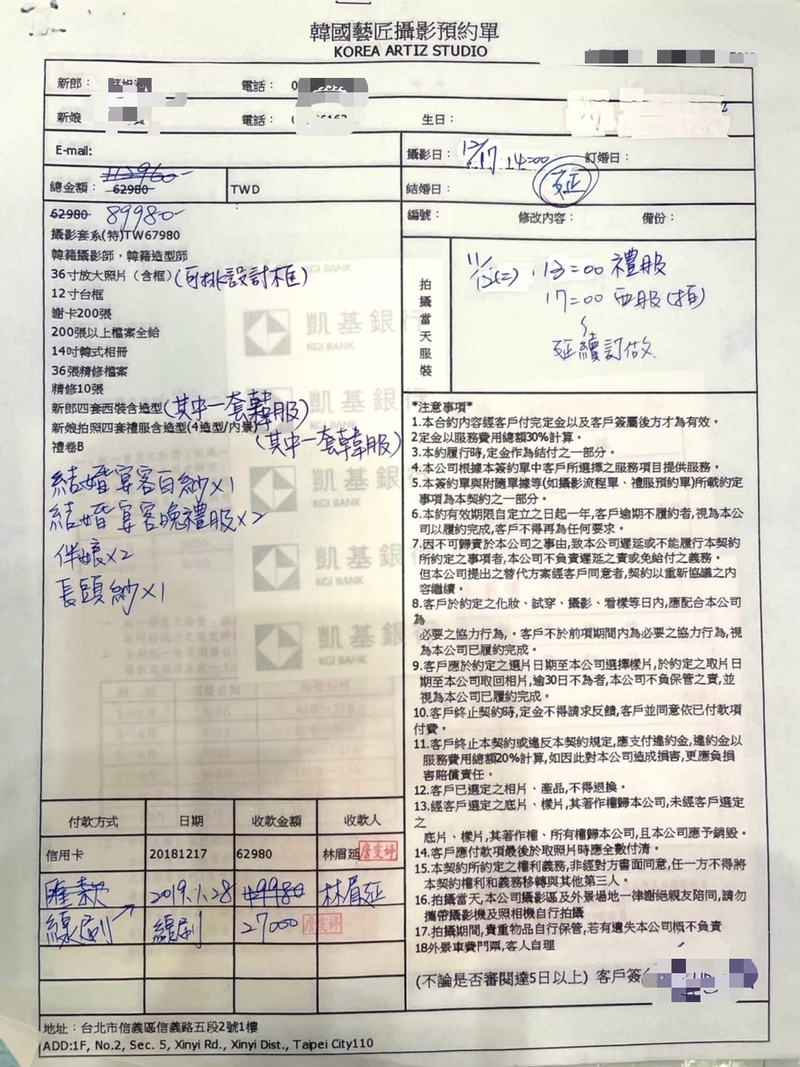 韓國藝匠攝影預約單
KOREA ARTIZ STUDIO
新郎：
電話：
新娘
電話：
生日：
E-mail:
攝影日：12/17 14:00
訂婚日：
總金額：
112960-
62980
TWD
結婚日：
延
編號：
修改內容：
備份：
62980 89980-
攝影套系(特)TW67980
韓籍攝影師，韓籍造型師
36寸放大照片（含框）(可挑設計框)
12寸台框
謝卡200張
200張以上檔案全給
14吋韓式相冊
36張精修檔案
精修10張
新郎四套西裝含造型(其中一套韓服)
新娘拍照四套禮服含造型(4造型/內景)(其中一套韓服)
禮卷B
結婚宴客白紗×1
結婚宴客晚禮服×2
伴娘×2
長頭紗×1
拍攝當天服裝
13:00 禮服
17:00 西服
延續訂做
凱基銀行
KGI BANK
凱基銀
KGI BANK
凱基銀
KGI BANK
凱基銀
KGI BANK
凱基銀
KGI BANK
*注意事項*
1.本合約內容經客戶付完定金以及客戶簽屬後方才為有效。
2定金以服務費用總額30%計算。
3.本約履行時,定金作為結付之一部分。
4.本公司根據本簽約單中客戶所選擇之服務項目提供服務。
5.本簽約單與附隨單據等(如攝影流程單、禮服預約單)所載約定
事項為本契約之一部分。
6.本約有效期限自定立之日起一年,客戶逾期不履約者,視為本公
司以履約完成,客戶不得再為任何要求。
7.因不可歸責於本公司之事由,致本公司遲延或不能履行本契約
所約定之事項者,本公司不負責遲延之責或免給付之義務。
但本公司提出之替代方案經客戶同意者,契約以重新協議之內
容繼續。
8.客戶於約定之化妝、試穿、攝影、看樣等日內,應配合本公司
為
必要之協力行為,‧客戶不於前項期間內為必要之協力行為,視
為本公司已履約完成。
9.客戶應於約定之選片日期至本公司選擇樣片,於約定之取片日
期至本公司取回相片,逾30日不為者,本公司不負保管之責,並
視為本公司已履約完成。
10.客戶終止契約時,定金不得請求反饋,客戶並同意依已付款項
付費。
11.客戶終止本契約或違反本契約規定,應支付違約金,違約金以
服務費用總額20%計算,如因此對本公司造成損害,更應負損
害賠償責任。
12.客戶已選定之相片、產品,不得退換。
13.經客戶選定之底片、樣片,其著作權歸本公司,未經客戶選定
之
底片、樣片,其著作權、所有權歸本公司,且本公司應予銷毀。
14.客戶應付款項最後於取照片時應全數付清。
15.本契約所約定之權利義務,非經對方書面同意,任一方不得將
本契約權利和義務移轉與其他第三人。
16.拍攝當天,本公司攝影區及外景場地一律謝絕親友陪同,請勿
攜帶攝影機及照相機自行拍攝
17.拍攝期間,貴重物品自行保管,若有遺失本公司概不負責
18外景車費門票,客人自理
(不論是否審閱達5日以上) 客戶簽
付款方式 日期 收款金額 收款人
信用卡 20181217 62980 林眉延 詹雯婷
匯款 2019.1.28 49980 林眉延
線刷 線刷 27000 詹雯婷
地址：台北市信義區信義路五段2號1樓
ADD:1F, No.2, Sec. 5, Xinyi Rd., Xinyi Dist., Taipei City110